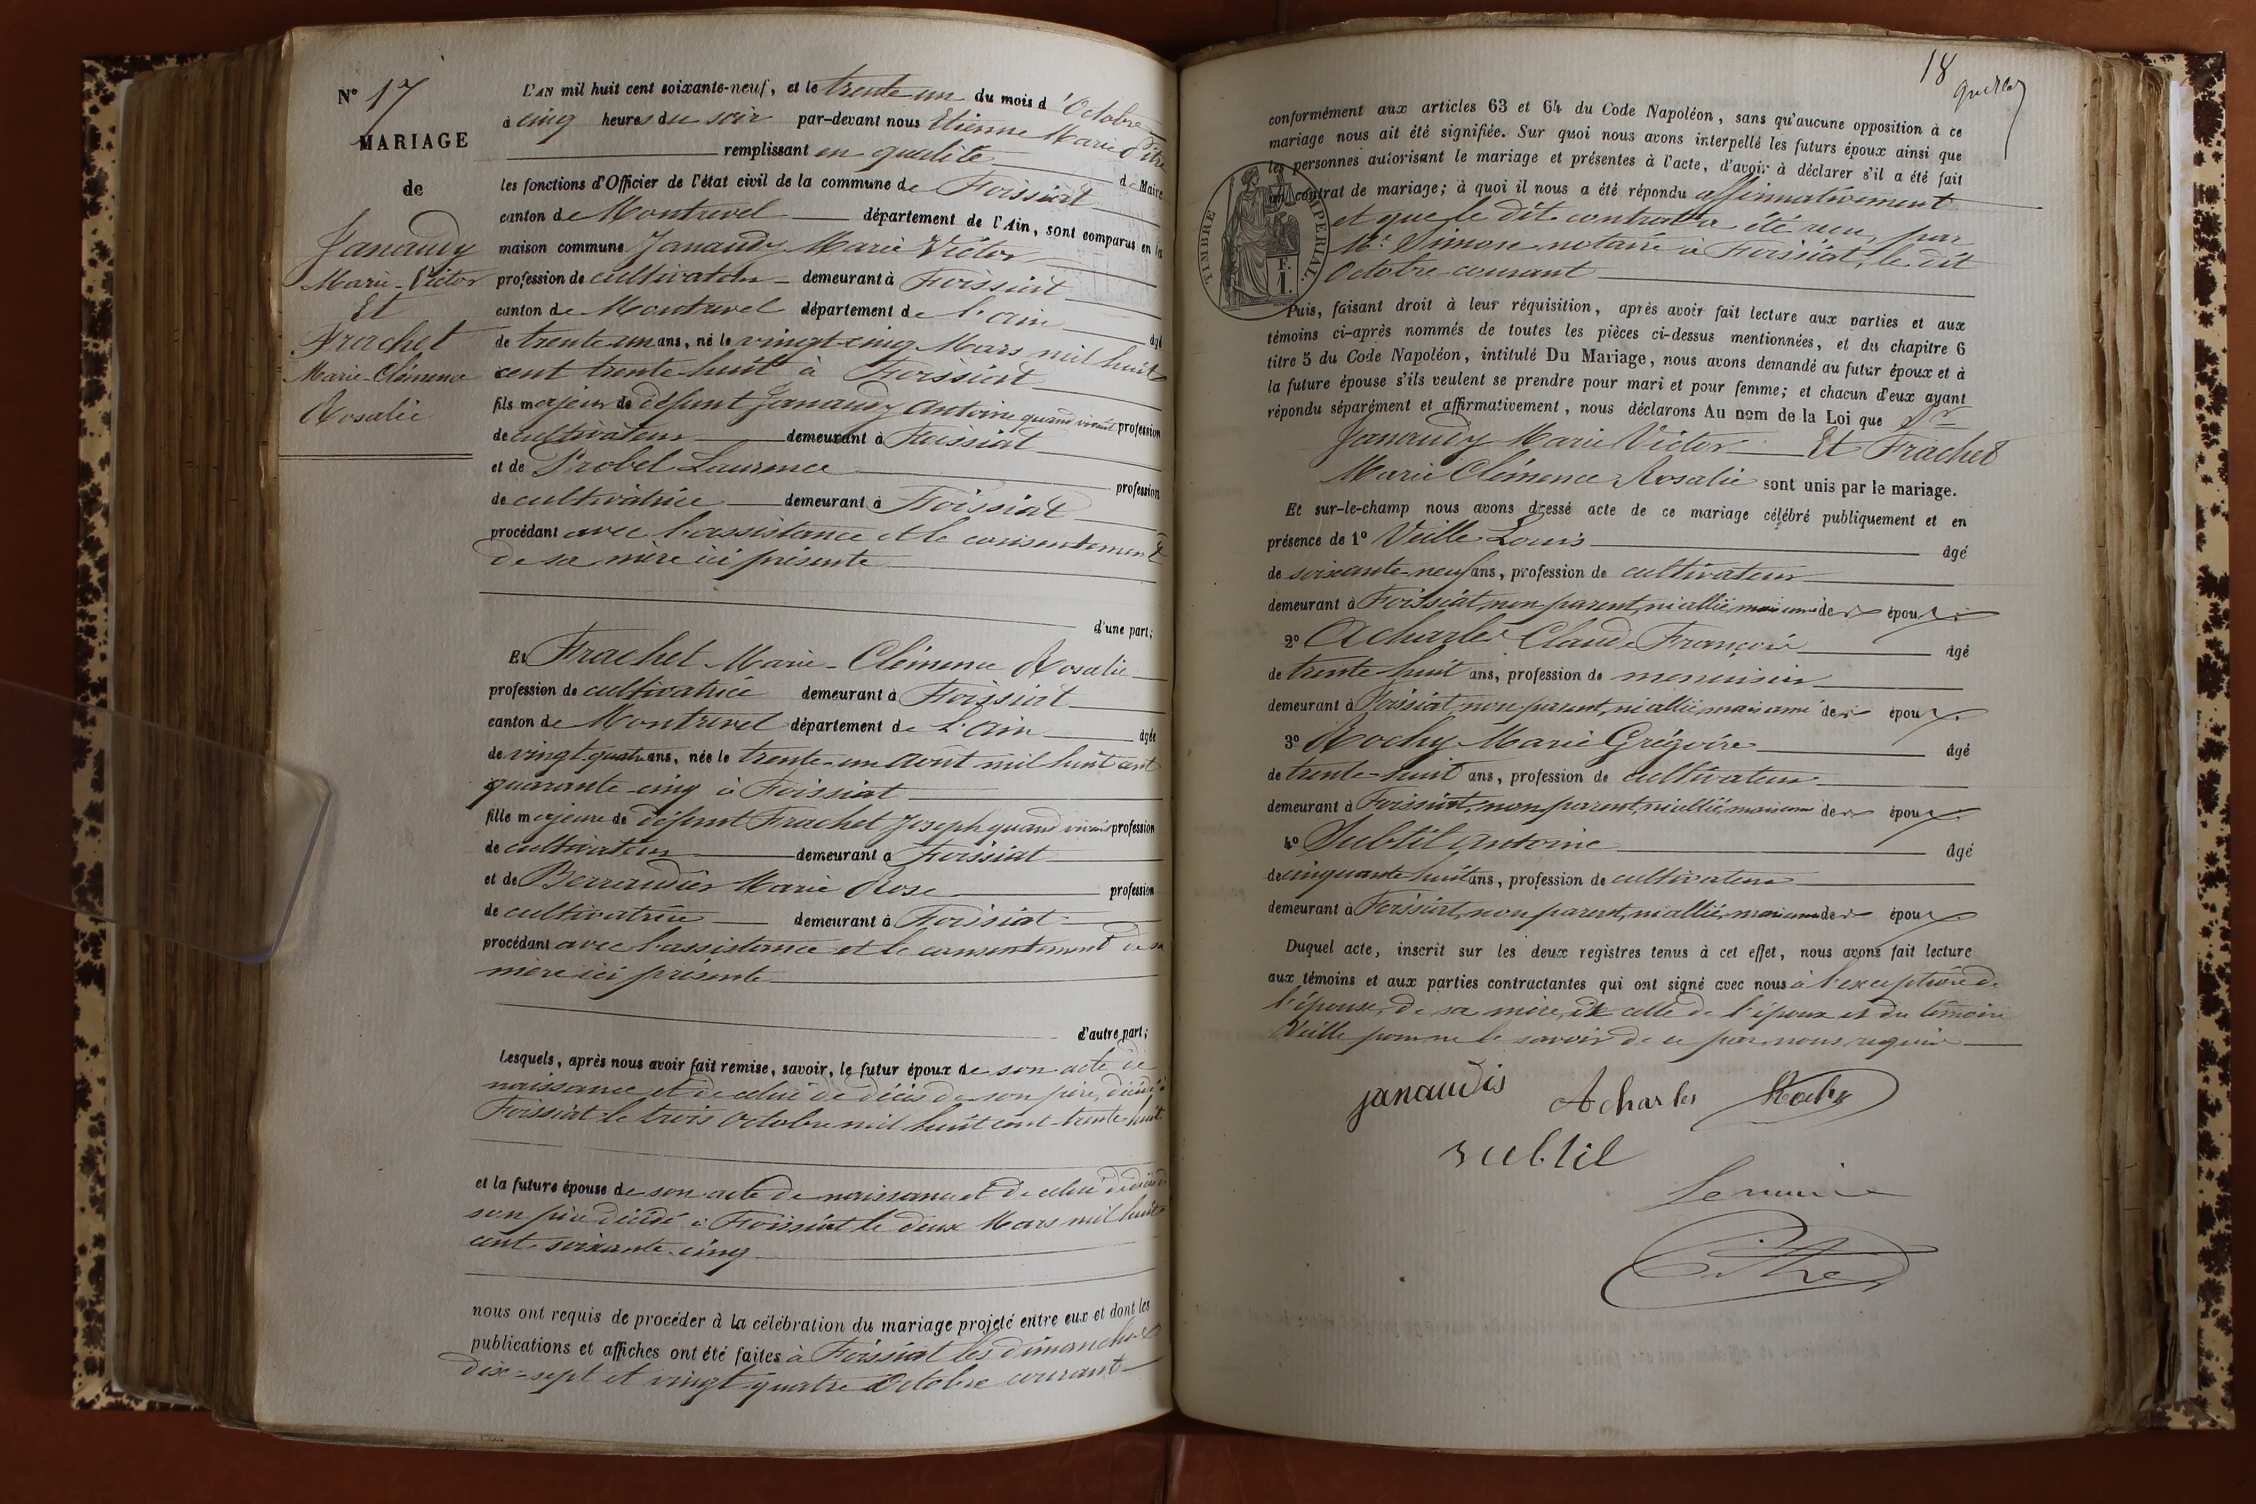 N° 17
MARIAGE
de
Janaudy
Marie-Victor
Et
Frachet
Marie-Clémence
Rosalie
L'AN mil huit cent soixante-neuf, et le trente un du mois d'Octobre
à cinq heures du soir par-devant nous Etienne Marie Pitre
remplissant en qualité de Maire
les fonctions d'Officier de l'état civil de la commune de Foissiat
canton de Montrevel département de l'Ain, sont comparus en la
maison commune Janaudy Marie Victor
profession de cultivateur demeurant à Foissiat
canton de Montrevel département de l'ain âgé
de trente un ans, né le vingt-cinq Mars mil huit
cent trente-huit à Foissiat
fils majeur de défunt Janaudy Antoine quand vivait profession
de cultivateur demeurant à Foissiat
et de Probel Laurence profession
de cultivatrice demeurant à Foissiat
procédant avec l'assistance et le consentement
de sa mère ici présente
d'une part;
Et Frachet Marie-Clémence Rosalie
profession de cultivatrice demeurant à Foissiat
canton de Montrevel département de l'ain âgée
de vingt-quatre ans, née le trente-un Août mil huit cent
quarante-cinq à Foissiat
fille majeure de défunt Frachet Joseph quand vivait profession
de cultivateur demeurant à Foissiat
et de Berraudier Marie Rose profession
de cultivatrice demeurant à Foissiat
procédant avec l'assistance et le consentement de sa
mère ici présente
d'autre part;
Lesquels, après nous avoir fait remise, savoir, le futur époux de son acte de
naissance et de celui de décès de son père, décédé à
Foissiat le trois Octobre mil huit cent trente-huit
et la future épouse de son acte de naissance et de celui de décès de
son père décédé à Foissiat le deux Mars mil huit
cent soixante-cinq
nous ont requis de procéder à la célébration du mariage projeté entre eux et dont les
publications et affiches ont été faites à Foissiat les dimanches
dix-sept et vingt-quatre Octobre courant
18
conformément aux articles 63 et 64 du Code Napoléon, sans qu'aucune opposition à ce
mariage nous ait été signifiée. Sur quoi nous avons interpellé les futurs époux ainsi que
les personnes autorisant le mariage et présentes à l'acte, d'avoir à déclarer s'il a été fait
un contrat de mariage; à quoi il nous a été répondu affirmativement
et que le dit contrat a été reçu par
Me Simon notaire à Foissiat, le dit
Octobre courant
TIMBRE IMPÉRIAL
F.
1.
Puis, faisant droit à leur réquisition, après avoir fait lecture aux parties et aux
témoins ci-après nommés de toutes les pièces ci-dessus mentionnées, et du chapitre 6
titre 5 du Code Napoléon, intitulé Du Mariage, nous avons demandé au futur époux et à
la future épouse s'ils veulent se prendre pour mari et pour femme; et chacun d'eux ayant
répondu séparément et affirmativement, nous déclarons Au nom de la Loi que Sr
Janaudy Marie Victor Et Frachet
Marie Clémence Rosalie sont unis par le mariage.
Et sur-le-champ nous avons dressé acte de ce mariage célébré publiquement et en
présence de 1° Veille Louis âgé
de soixante-neuf ans, profession de cultivateur
demeurant à Foissiat, non parent, ni allié, mais ami des époux
2° Acharles Claude François âgé
de trente-huit ans, profession de menuisier
demeurant à Foissiat, non parent, ni allié, mais ami des époux
3° Rochy Marie Grégoire âgé
de trente-huit ans, profession de cultivateur
demeurant à Foissiat, non parent, ni allié, mais ami des époux
4° Subtil Antoine âgé
de cinquante huit ans, profession de cultivateur
demeurant à Foissiat, non parent, ni allié, mais ami des époux
Duquel acte, inscrit sur les deux registres tenus à cet effet, nous avons fait lecture
aux témoins et aux parties contractantes qui ont signé avec nous à l'exception de
l'épouse, de sa mère, et celle de l'époux et du témoin
Veille pour ne le savoir de ce par nous requis
janaudis Acharles Rochy
subtil
Le maire
Pitre